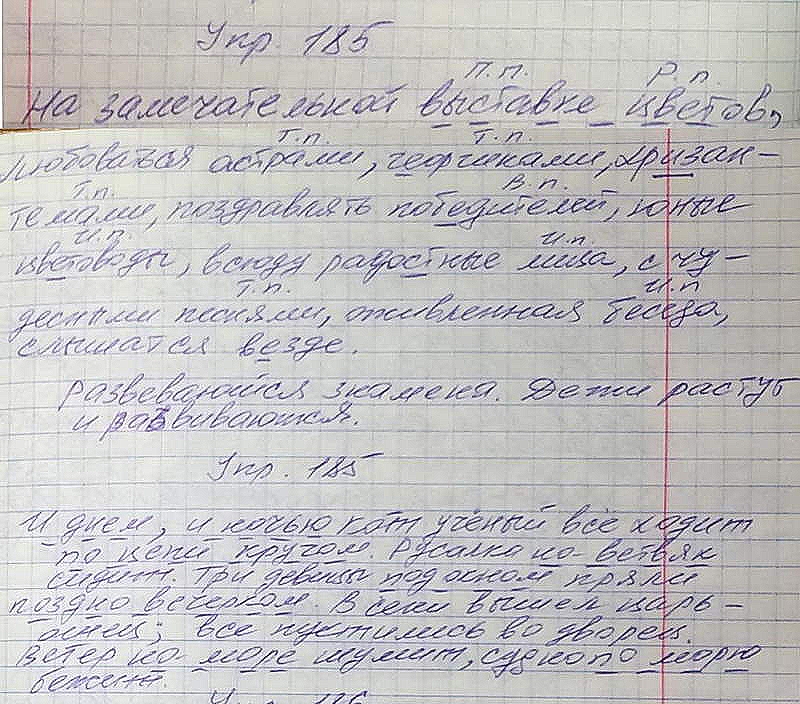 Упр. 185
П.п. Р.п.
На замечательной выставке цветов,
Т.п. Т.п.
любоваться астрами, георгинами, хризан-
Т.п. В.п.
темами, поздравлять победителей, юные
И.п. И.п.
цветоводы, всюду радостные лица, с чу-
Т.п. И.п
десными песнями, оживленная беседа,
слышатся везде.
Развеваются знамена. Дети растут
и развиваются.
Упр. 185
И днем, и ночью кот учёный всё ходит
по цепи кругом. Русалка по ветвях
сидит. Три девицы под окном пряли
поздно вечерком. В сени вышел царь-
отец; все пустились во дворец.
Ветер по морю шумит, судно по морю
бежит.
Упр. 186